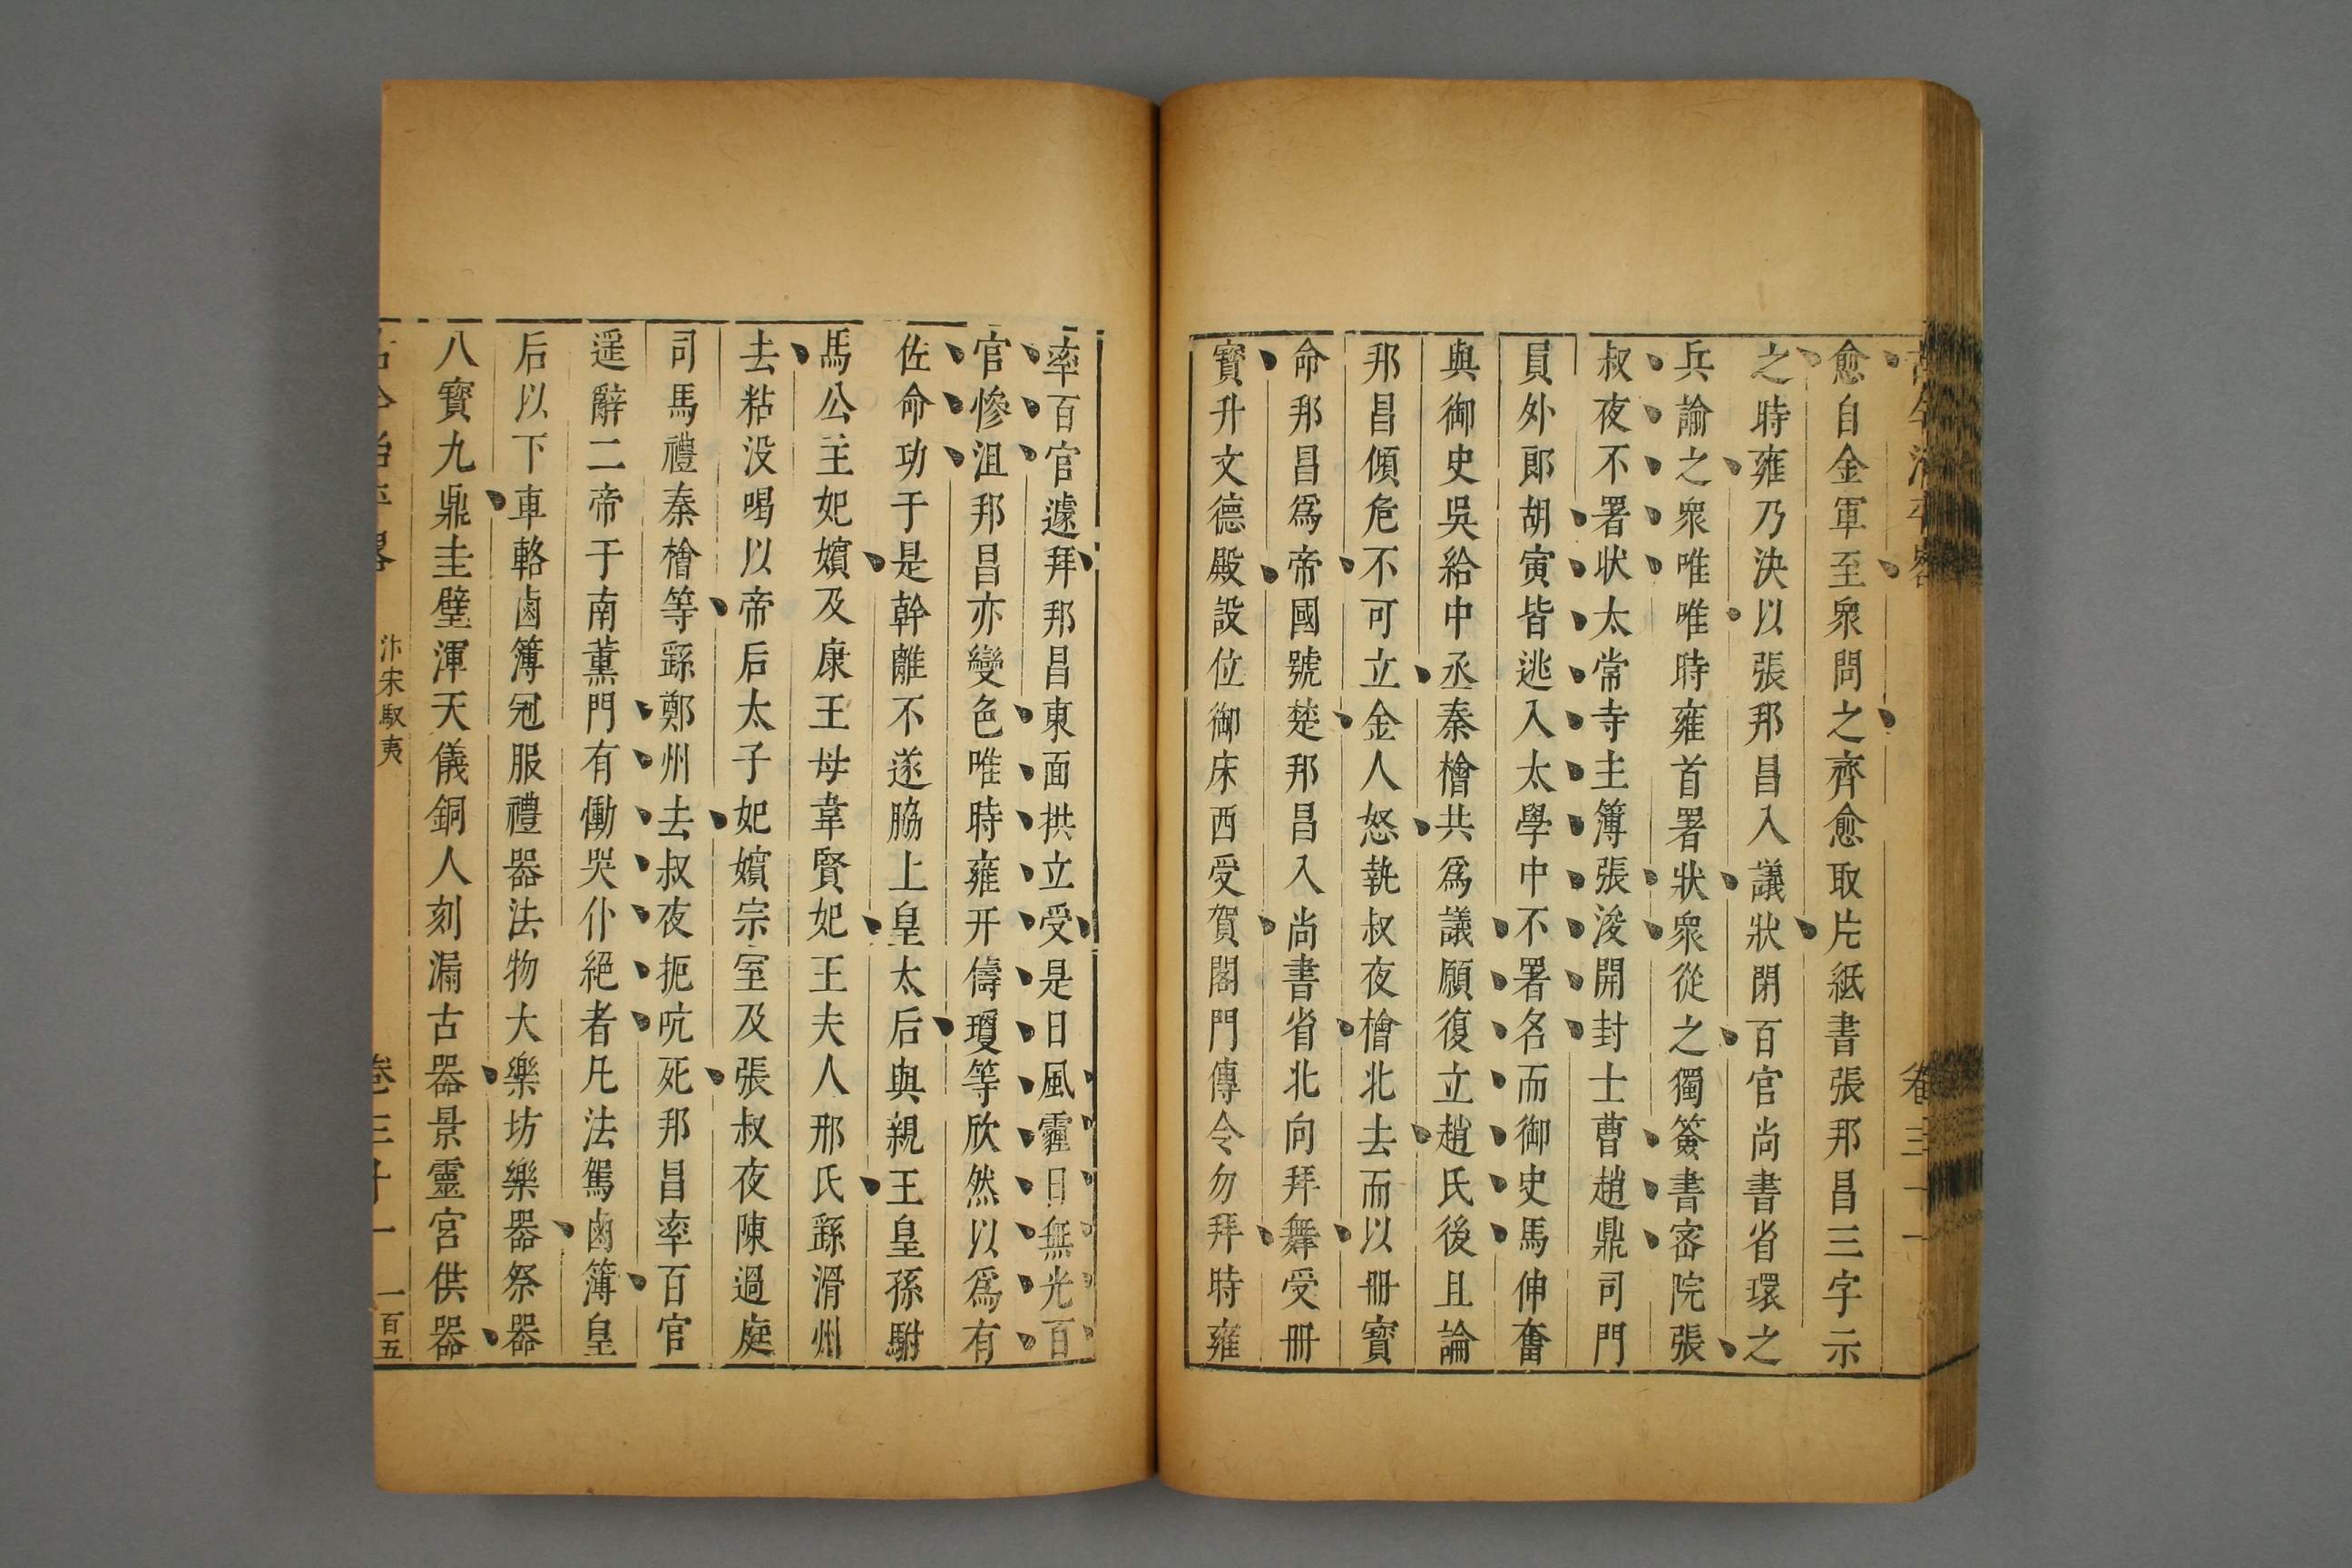 愈自金軍至衆問之齊愈取片紙書張邦昌三字示
之時雍乃決以張邦昌入議狀閉百官尚書省環之
兵諭之衆唯唯時雍首署狀衆從之獨簽書密院張
叔夜不署狀太常寺主簿張浚開封士曹趙鼎司門
員外郎胡寅皆逃入太學中不署名而御史馬伸奮
與御史吳給中丞秦檜共爲議願復立趙氏後且論
邦昌傾危不可立金人怒執叔夜檜北去而以冊寶
命邦昌爲帝國號楚邦昌入尚書省北向拜舞受冊
寶升文德殿設位御床西受賀閤門傳令勿拜時雍
率百官遽拜邦昌東面拱立受是日風霾日無光百
官慘沮邦昌亦變色唯時雍开儔瓊等欣然以爲有
佐命功于是幹離不遂脇上皇太后與親王皇孫駙
馬公主妃嬪及康王母韋賢妃王夫人邢氏繇滑州
去粘没喝以帝后太子妃嬪宗室及張叔夜陳過庭
司馬禮秦檜等繇鄭州去叔夜扼吭死邦昌率百官
遥辭二帝于南薰門有慟哭仆絕者凡法駕鹵簿皇
后以下車輅鹵簿冠服禮器法物大樂坊樂器祭器
八寶九鼎圭璧渾天儀銅人刻漏古器景靈宮供器
汴宋馭夷
卷三十一
一百五